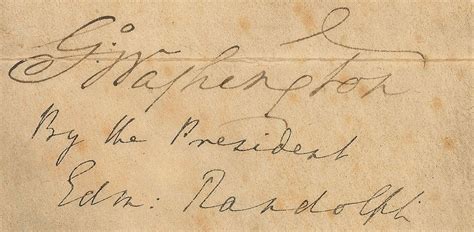 G:Washington
By the President
Edm: Randolph